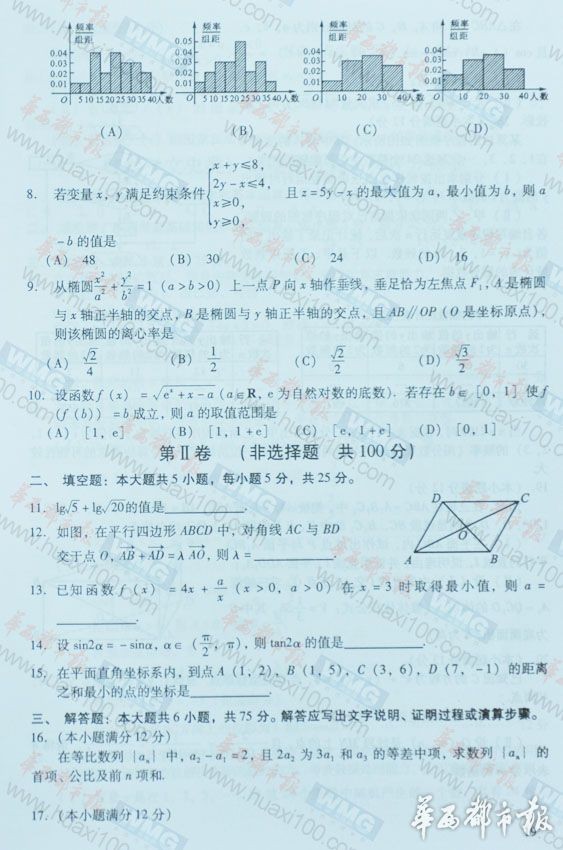 频率 频率 频率 频率
组距 组距 组距 组距
0.04 0.05 0.04 0.04
0.03 0.04 0.03 0.03
0.02 0.03 0.02 0.02
0.01 0.02 0.01 0.01
0.01
O 5 10 15 20 25 30 35 40 人数 O 5 10 15 20 25 30 35 40 人数 O 10 20 30 40 人数 O 10 20 30 40 人数
(A) (B) (C) (D)
8. 若变量 x, y 满足约束条件 { x + y ≤ 8, 2y - x ≤ 4, x ≥ 0, y ≥ 0, 且 z = 5y - x 的最大值为 a, 最小值为 b, 则 a
- b 的值是
(A) 48 (B) 30 (C) 24 (D) 16
9. 从椭圆 x²/a² + y²/b² = 1 (a > b > 0) 上一点 P 向 x 轴作垂线, 垂足恰为左焦点 F₁, A 是椭圆
与 x 轴正半轴的交点, B 是椭圆与 y 轴正半轴的交点, 且 AB∥OP (O 是坐标原点),
则该椭圆的离心率是
(A) √2/4 (B) 1/2 (C) √2/2 (D) √3/2
10. 设函数 f (x) = √(eˣ + x - a) (a∈R, e 为自然对数的底数). 若存在 b∈ [0, 1] 使 f
(f (b)) = b 成立, 则 a 的取值范围是
(A) [1, e] (B) [1, 1 + e] (C) [e, 1 + e] (D) [0, 1]
第Ⅱ卷 (非选择题 共 100 分)
二、 填空题: 本大题共 5 小题, 每小题 5 分, 共 25 分。
11. lg√5 + lg√20的值是____________.
12. 如图, 在平行四边形 ABCD 中, 对角线 AC 与 BD
交于点 O, AB + AD = λ AO, 则 λ = ____________.
D C
O
A B
13. 已知函数 f (x) = 4x + a/x (x > 0, a > 0) 在 x = 3 时取得最小值, 则 a =
____________.
14. 设 sin2α = - sinα, α∈ (π/2, π), 则 tan2α 的值是____________.
15. 在平面直角坐标系内, 到点 A (1, 2), B (1, 5), C (3, 6), D (7, -1) 的距离
之和最小的点的坐标是____________.
三、 解答题: 本大题共 6 小题, 共 75 分。解答应写出文字说明、证明过程或演算步骤。
16. (本小题满分 12 分)
在等比数列 {aₙ} 中, a₂ - a₁ = 2, 且 2a₂ 为 3a₁ 和 a₃ 的等差中项, 求数列 {aₙ} 的
首项、公比及前 n 项和.
17. (本小题满分 12 分)
华西都市报
www.huaxi100.com
WMG